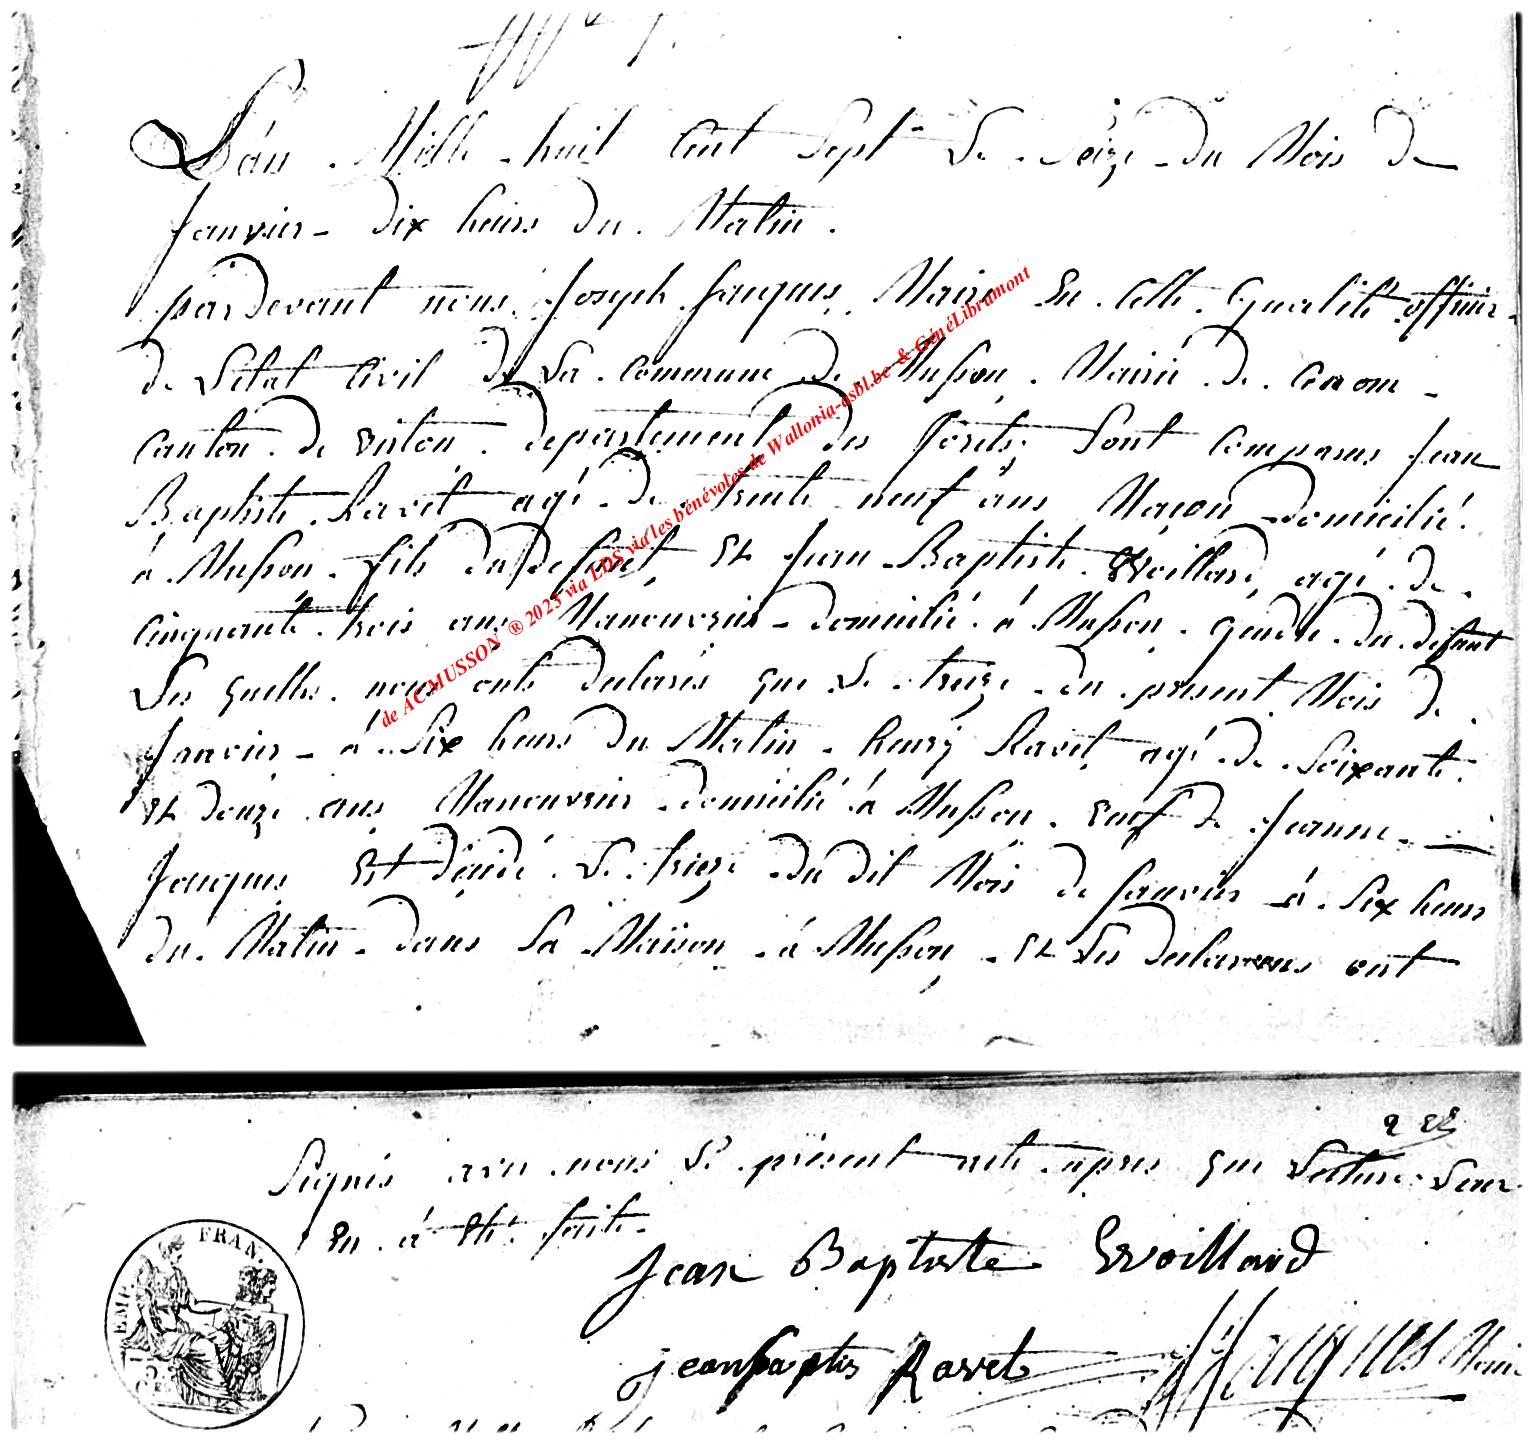 L'án Mille huit Cent Sept Le Seize du Mois de
Janvier dix heurs du Matin.
pardevant nous Joseph Jacques, Maire En Cette Qualité officier
de L'etat Civil de La Commune de Musson, Mairie de
Canton de virton departement des forêts, Sont Comparus Jean
Baptiste Ravet agé de trente neuf ans Maçon domicilié
á Musson fils du defunt, Et Jean Baptiste Evoillard agé de
Cinquante trois ans Manouvrier domicilié á Musson, gendre du défunt
Les quelles nous onts declarés que Le treize du present Mois de
Janvier á Six heurs du Matin henry Ravet agé de Soixante
Et douze ans Manouvrier domicilié á Musson veuf de Jeanne
Jacques Est décidé Le treize du dit Mois de Janvier á Six heurs
du Matin dans Sa Maison á Musson, Et Les declarans ont
de ACMUSSON ® 2023 via LDS via les bénévoles de Wallonia-asbl.be & GénéLibramont
Signés avec nous Le présent acte apres que Lecture Leur
En á Eté faite
EMP. FRAN.
Jean Baptiste Evoillard
jean baptis Ravet Jacques Maire